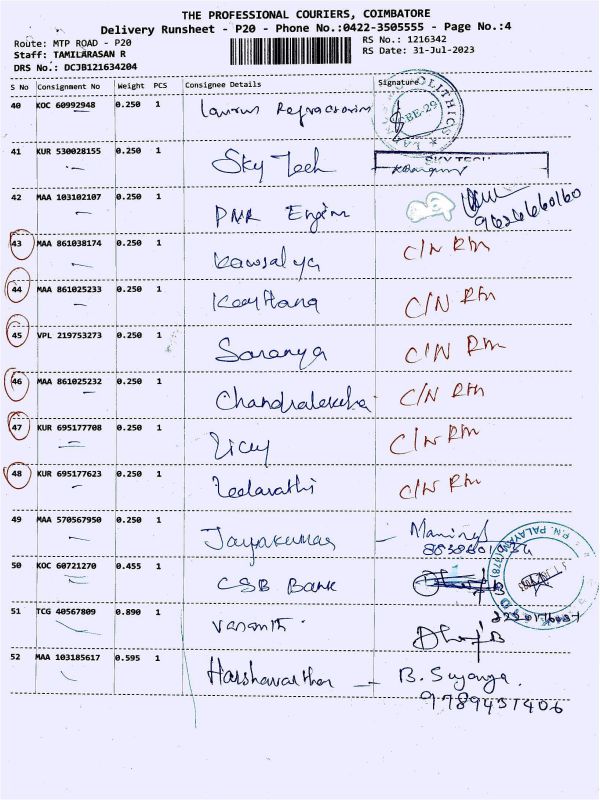 THE PROFESSIONAL COURIERS, COIMBATORE
Delivery Runsheet - P20 - Phone No.:0422-3505555 - Page No.:4
Route: MTP ROAD - P20
RS No.: 1216342
Staff: TAMILARASAN R
RS Date: 31-Jul-2023
DRS No.: DCJB121634204
S No Consignment No Weight PCS Consignee Details Signature
40 KOC 60992948 0.250 1
BE-29
41 KUR 530028155 0.250 1 Sky Tech SKY TECH
42 MAA 103102107 0.250 1 PMR Engim 9626660160
43 MAA 861038174 0.250 1 Kowsalya C/N Rtn
44 MAA 861025233 0.250 1 C/N Rtn
45 VPL 219753273 0.250 1 Saranya C/N Rtn
46 MAA 861025232 0.250 1 Chandralekha C/N Rtn
47 KUR 695177708 0.250 1 C/N Rtn
48 KUR 695177623 0.250 1 C/N Rtn
49 MAA 570567950 0.250 1 Jayakumar
P.N. PALAYAM
50 KOC 60721270 0.455 1 CSB Bank
51 TCG 40567809 0.890 1
52 MAA 103185617 0.595 1 Harshavardhan B. Suganya.
9789451406